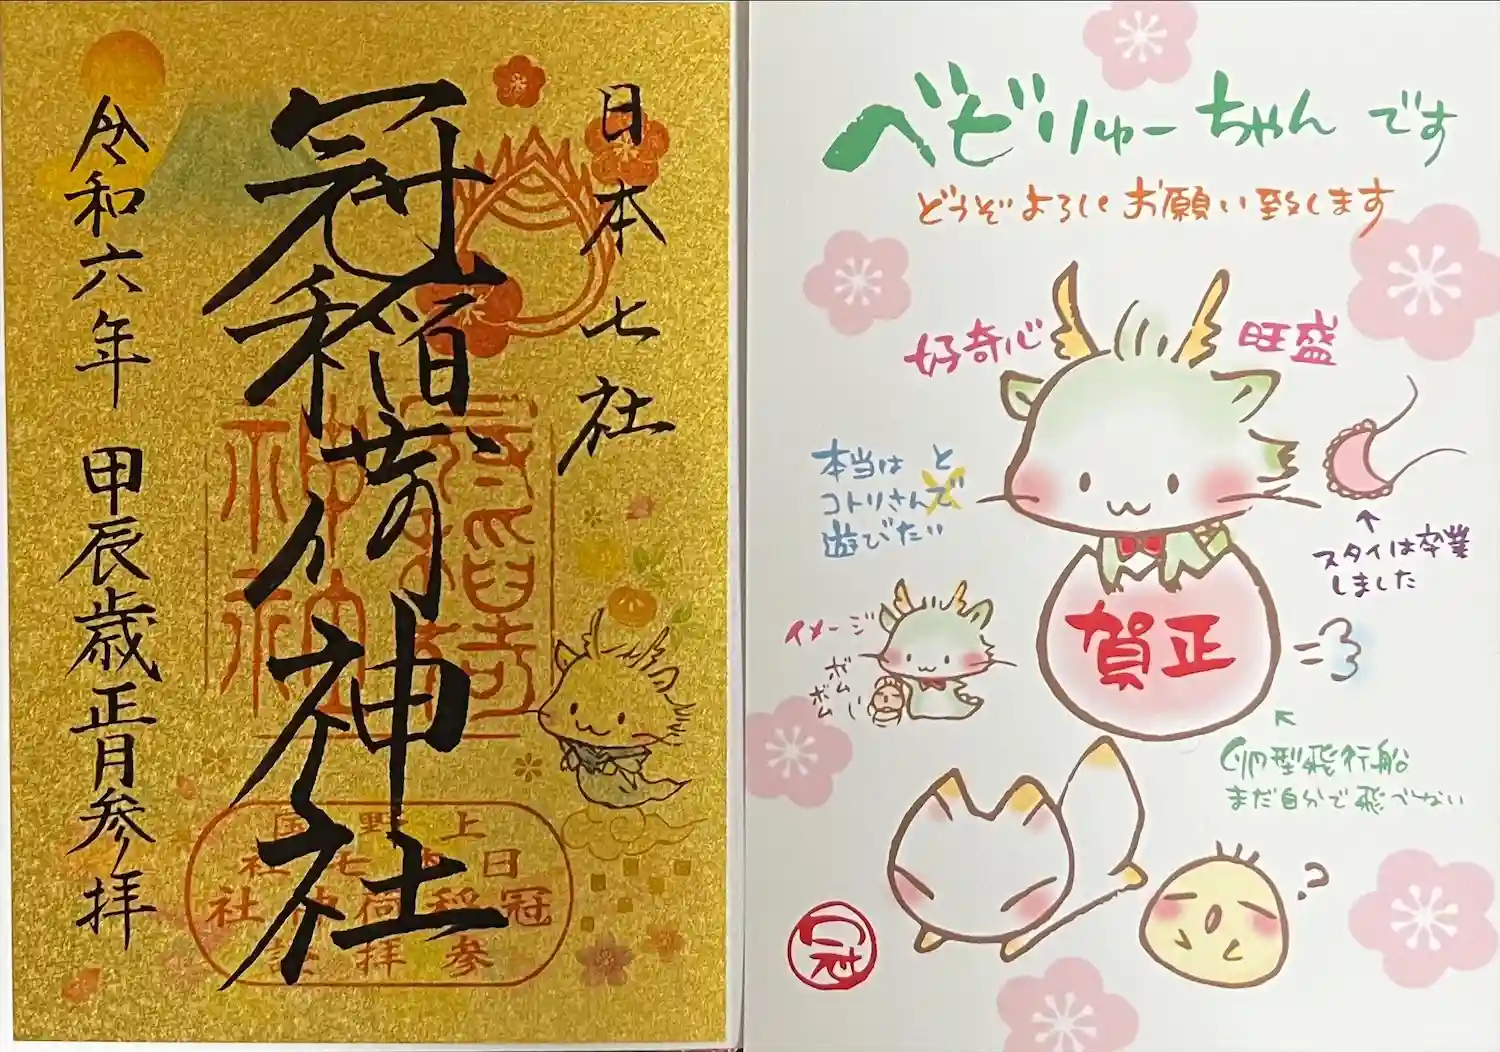 日本七社
冠稲荷神社
令和六年 甲辰歳正月参拝
上野国
日本七社
冠稲荷神社
参拝
べびりゅーちゃんです
どうぞよろしくお願い致します
好奇心
旺盛
本当は
コトリさんでと
遊びたい
スタイは卒業
しました
イメージ
ボム
ボム
賀正
卵型飛行船
まだ自分で飛べない
?